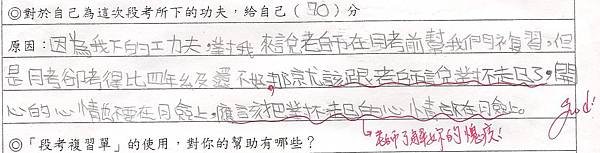 ◎對於自己為這次段考所下的功夫，給自己（70）分
原因：因為我下的工力夫，對我來說老師在月考前幫我們複習。但
是月考卻考得比四年級還不好，那就該跟老師說對不起了，開
心的心情就不要在月臉上，應該把對不起的心情在月臉上。
good!
老師了解妳的愧疚!
◎「段考複習單」的使用，對你的幫助有哪些？